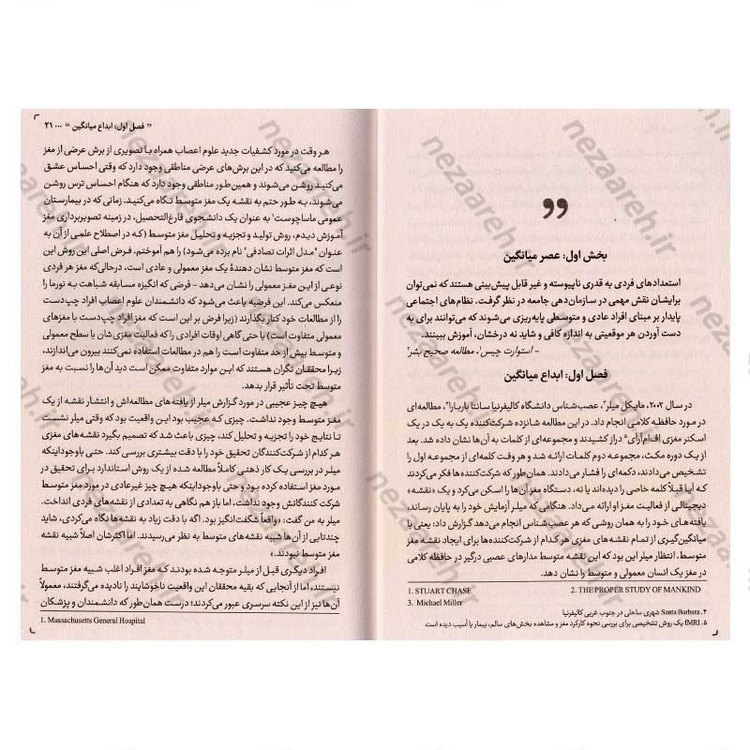 ”
بخش اول: عصر میانگین
استعدادهای فردی به قدری ناپیوسته و غیر قابل پیش‌بینی هستند که نمی‌توان
برایشان نقش مهمی در سازمان‌دهی جامعه در نظر گرفت. نظام‌های اجتماعی
پایدار بر مبنای افراد عادی و متوسطی پایه‌ریزی می‌شوند که می‌توانند برای به
دست آوردن هر موقعیتی به اندازه کافی و شاید نه درخشان، آموزش ببینند.
- استوارت چیس¹، مطالعه صحیح بشر²
فصل اول: ابداع میانگین
در سال ۲۰۰۲، مایکل میلر³، عصب‌شناس دانشگاه کالیفرنیا سانتا باربارا⁴، مطالعه‌ای
در مورد حافظه کلامی انجام داد. در این مطالعه شانزده شرکت‌کننده یک به یک در یک
اسکنر مغزی اف‌ام‌آرآی⁵ دراز کشیدند و مجموعه‌ای از کلمات به آن‌ها نشان داده شد. بعد
از یک دوره مکث، مجموعه دوم کلمات ارائه شد و هر وقت کلمه‌ای از مجموعه اول را
تشخیص می‌دادند، دکمه‌ای را فشار می‌دادند. همان‌طور که شرکت‌کننده‌ها فکر می‌کردند
که آیا قبلاً کلمه خاصی را دیده‌اند یا نه، دستگاه مغز آن‌ها را اسکن می‌کرد و یک «نقشه»
دیجیتالی از فعالیت مغز او ارائه می‌داد. هنگامی که میلر آزمایش خود را به پایان رساند،
یافته‌های خود را به همان روشی که هر عصب‌شناس انجام می‌دهد گزارش داد؛ یعنی با
میانگین‌گیری از تمام نقشه‌های مغزی هر کدام از شرکت‌کننده‌ها برای ایجاد نقشه مغز
متوسط. انتظار میلر این بود که این نقشه متوسط مدارهای عصبی درگیر در حافظه کلامی
در مغز یک انسان معمولی و متوسط را نشان دهد.
1. STUART CHASE 2. THE PROPER STUDY OF MANKIND
3. Michael Miller
۴. Santa Barbara شهری ساحلی در جنوب غربی کالیفرنیا
۵. fMRI یک روش تشخیصی برای بررسی نحوه کارکرد مغز و مشاهده بخش‌های سالم، بیمار یا آسیب دیده است
« فصل اول: ابداع میانگین » ... ۲۱
هر وقت در مورد کشفیات جدید علوم اعصاب همراه با تصویری از برش عرضی از مغز
را مطالعه می‌کنید که در این برش‌های عرضی مناطقی وجود دارد که وقتی احساس عشق
می‌کنید روشن می‌شوند و همین‌طور مناطقی وجود دارد که هنگام احساس ترس روشن
می‌شوند، به طور حتم به نقشه یک مغز متوسط نگاه می‌کنید. زمانی که در بیمارستان
عمومی ماساچوست¹ به عنوان یک دانشجوی فارغ‌التحصیل، در زمینه تصویربرداری مغز
آموزش دیدم، روش تولید و تجزیه و تحلیل مغز متوسط (که در اصطلاح علمی از آن به
عنوان "مدل اثرات تصادفی" نام برده می‌شود) را هم آموختم. فرض اصلی این روش این
است که مغز متوسط نشان دهندهٔ یک مغز معمولی و عادی است، درحالی‌که مغز هر فردی
نوعی از این مغز معمولی را نشان می‌دهد - فرضی که انگیزه مسابقه شباهت به نورما را
منعکس می‌کند. این فرضیه باعث می‌شود که دانشمندان علوم اعصاب افراد چپ‌دست
را از مطالعات خود کنار بگذارند (زیرا فرض بر این است که مغز افراد چپ‌دست با مغزهای
معمولی متفاوت است) یا حتی گاهی اوقات افرادی را که فعالیت مغزی‌شان با سطح معمولی
و متوسط بیش از حد متفاوت است را هم در مطالعات استفاده نمی‌کنند بیرون می‌اندازند،
زیرا محققان نگران هستند که این موارد متفاوت ممکن است دید آن‌ها را نسبت به مغز
متوسط تحت تأثیر قرار بدهد.
هیچ چیز عجیبی در مورد گزارش میلر از یافته‌های مطالعه‌اش و انتشار نقشه از یک
مغز متوسط وجود نداشت. چیزی که عجیب بود این واقعیت بود که وقتی میلر نشست
تا نتایج خود را تجزیه و تحلیل کند، چیزی باعث شد که تصمیم بگیرد نقشه‌های مغزی
هر کدام از شرکت‌کنندگان تحقیق خود را با دقت بیشتری بررسی کند. حتی باوجوداینکه
میلر در بررسی یک کار ذهنی کاملاً مطالعه شده از یک روش استاندارد برای تحقیق در
مورد مغز استفاده کرده بود و حتی باوجوداینکه هیچ چیز غیرعادی در مورد مغز متوسط
شرکت کنندگانش وجود نداشت، اما باز هم نگاهی به تعدادی از نقشه‌های فردی انداخت.
میلر به من گفت: «واقعاً شگفت‌انگیز بود. اگه با دقت زیاد به نقشه‌ها نگاه می‌کردی، شاید
چندتایی از آن‌ها شبیه نقشه‌های متوسط به نظر می‌رسیدند. اما اکثرشان اصلاً شبیه نقشه
مغز متوسط نبودند.»
افراد دیگری قبل از میلر متوجه شده بودند که مغز افراد اغلب شبیه مغز متوسط
نیستند، اما از آنجایی که بقیه محققان این واقعیت ناخوشایند را نادیده می‌گرفتند، معمولاً
آن‌ها نیز از این نکته سرسری عبور می‌کردند؛ درست همان‌طور که دانشمندان و پزشکان
1. Massachusetts General Hospital
nezaareh.ir